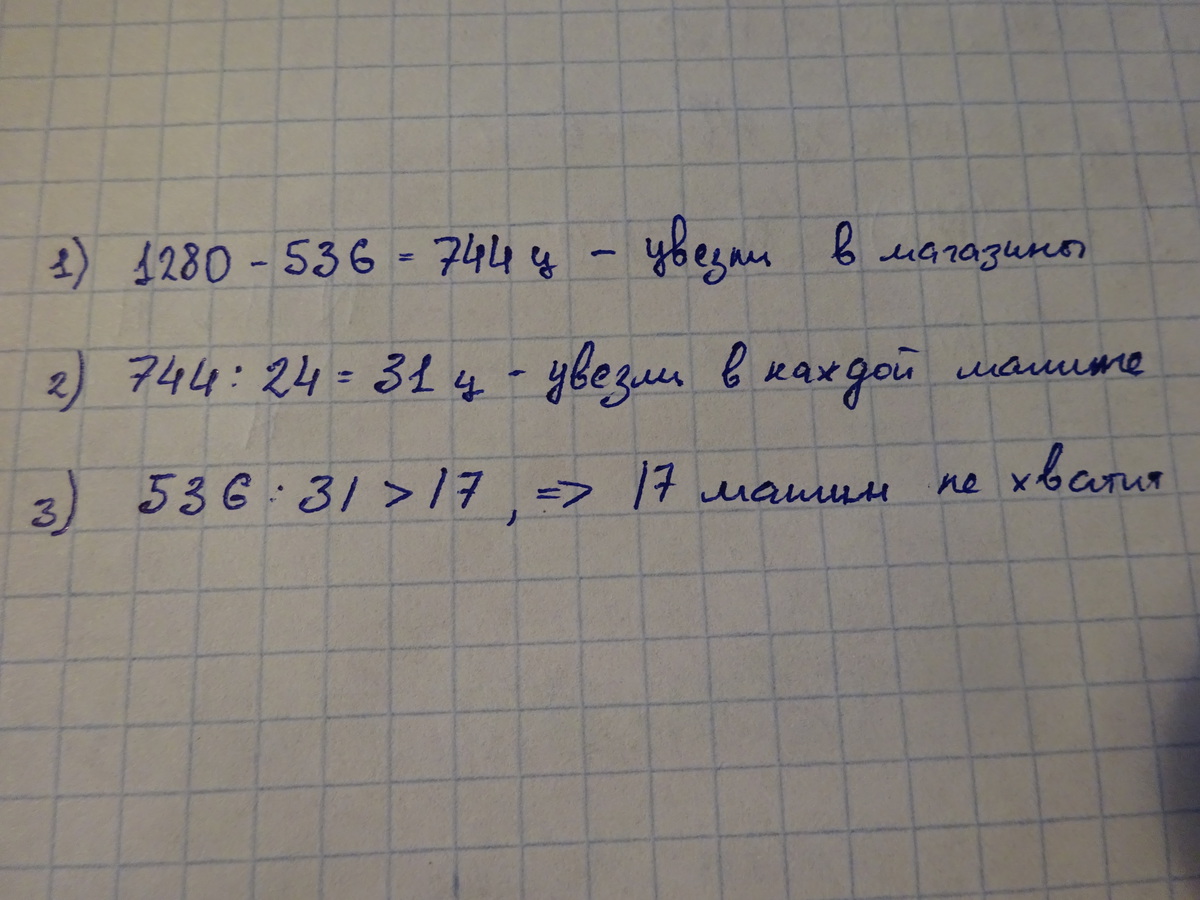 1) 1280 - 536 = 744 ц - увезли в магазины
2) 744 : 24 = 31 ц - увезли в каждой машине
3) 536 : 31 > 17, => 17 машин не хватит